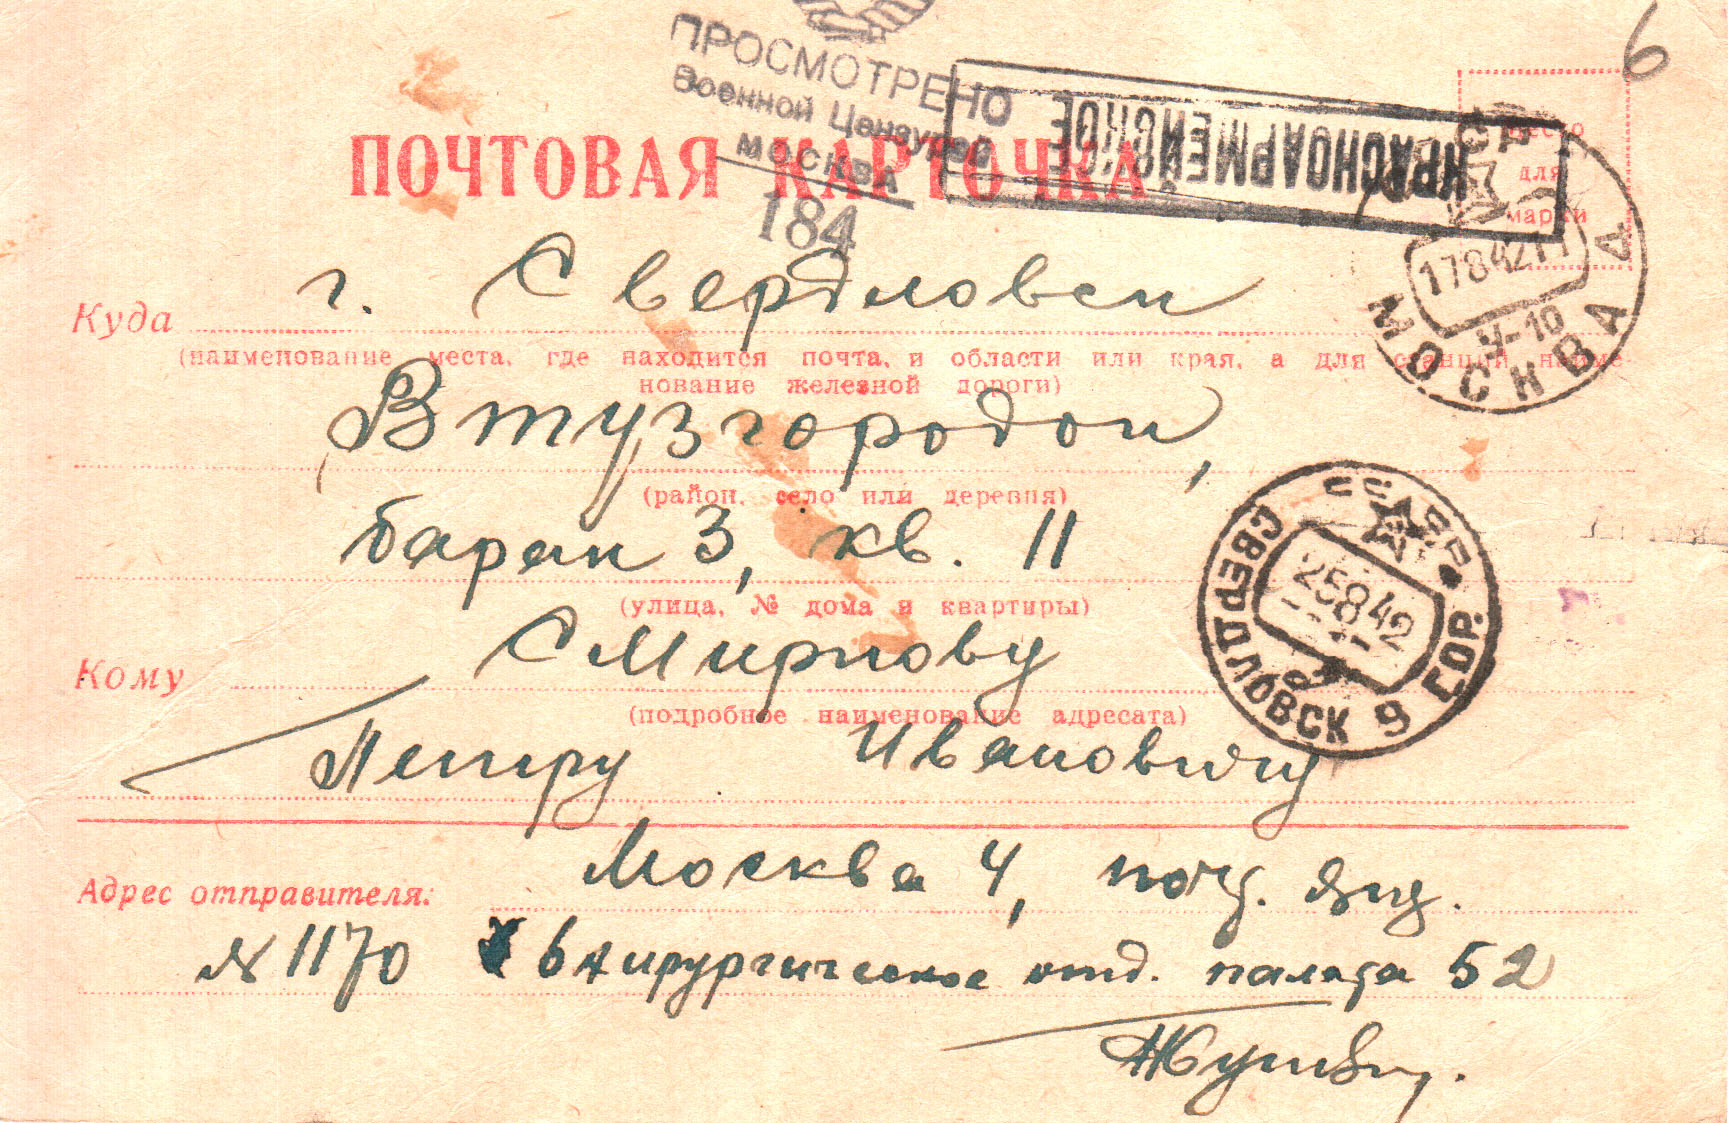 6
ПРОСМОТРЕНО
Военной Цензурой
МОСКВА
184
КРАСНОАРМЕЙСКОЕ
ПОЧТОВАЯ КАРТОЧКА
Место
для
марки
МОСКВА
17842
У-10
Куда г. Свердловск
(наименование места, где находится почта, и области или края, а для станций наиме-
нование железной дороги)
Втузгородок,
(район, село или деревня)
барак 3, кв. 11
(улица, № дома и квартиры)
СВЕРДЛОВСК 9 ГОР.
25842
Кому Смирнову
(подробное наименование адресата)
Петру Ивановичу
Адрес отправителя: Москва 4, почт. ящ.
№ 1170 6 хирургическое отд. палата 52